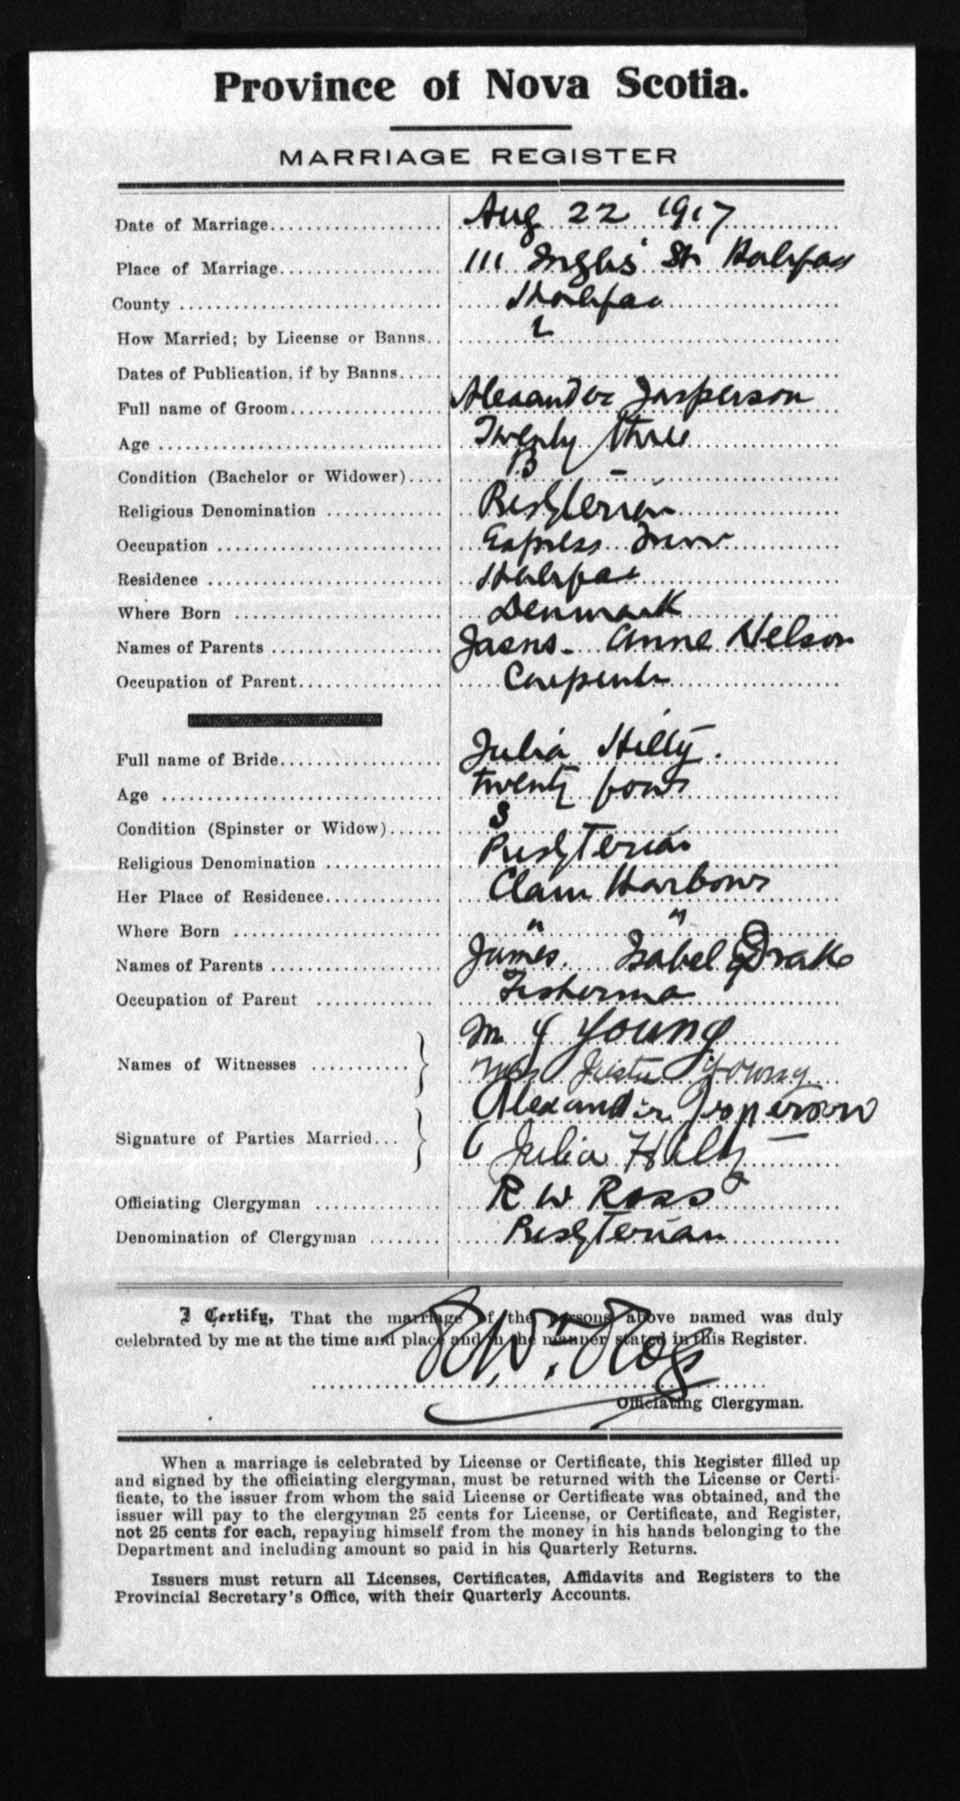 Province of Nova Scotia.
MARRIAGE REGISTER
Date of Marriage Aug 22 1917
Place of Marriage 111 Inglis St Halifax
County Halifax
How Married; by License or Banns L
Dates of Publication, if by Banns
Full name of Groom Alexander Jasperson
Age Twenty three
Condition (Bachelor or Widower) B
Religious Denomination Presbyterian
Occupation Express
Residence Halifax
Where Born Denmark
Names of Parents Anne Nelson
Occupation of Parent Carpenter
Full name of Bride Julia Hilty.
Age twenty four
Condition (Spinster or Widow) S
Religious Denomination Presbyterian
Her Place of Residence Clam Harbour
Where Born " "
Names of Parents James. Isabel Drake
Occupation of Parent Fisherman
Young
Names of Witnesses
Young
Alexander
Signature of Parties Married
Julia Hilty
Officiating Clergyman R W Ross
Denomination of Clergyman Presbyterian
I Certify, That the marriage of the persons above named was duly
celebrated by me at the time and place and in the manner stated in this Register.
R. Wm. Ross
Officiating Clergyman.
When a marriage is celebrated by License or Certificate, this Register filled up
and signed by the officiating clergyman, must be returned with the License or Certi-
ficate, to the issuer from whom the said License or Certificate was obtained, and the
issuer will pay to the clergyman 25 cents for License, or Certificate, and Register,
not 25 cents for each, repaying himself from the money in his hands belonging to the
Department and including amount so paid in his Quarterly Returns.
Issuers must return all Licenses, Certificates, Affidavits and Registers to the
Provincial Secretary's Office, with their Quarterly Accounts.